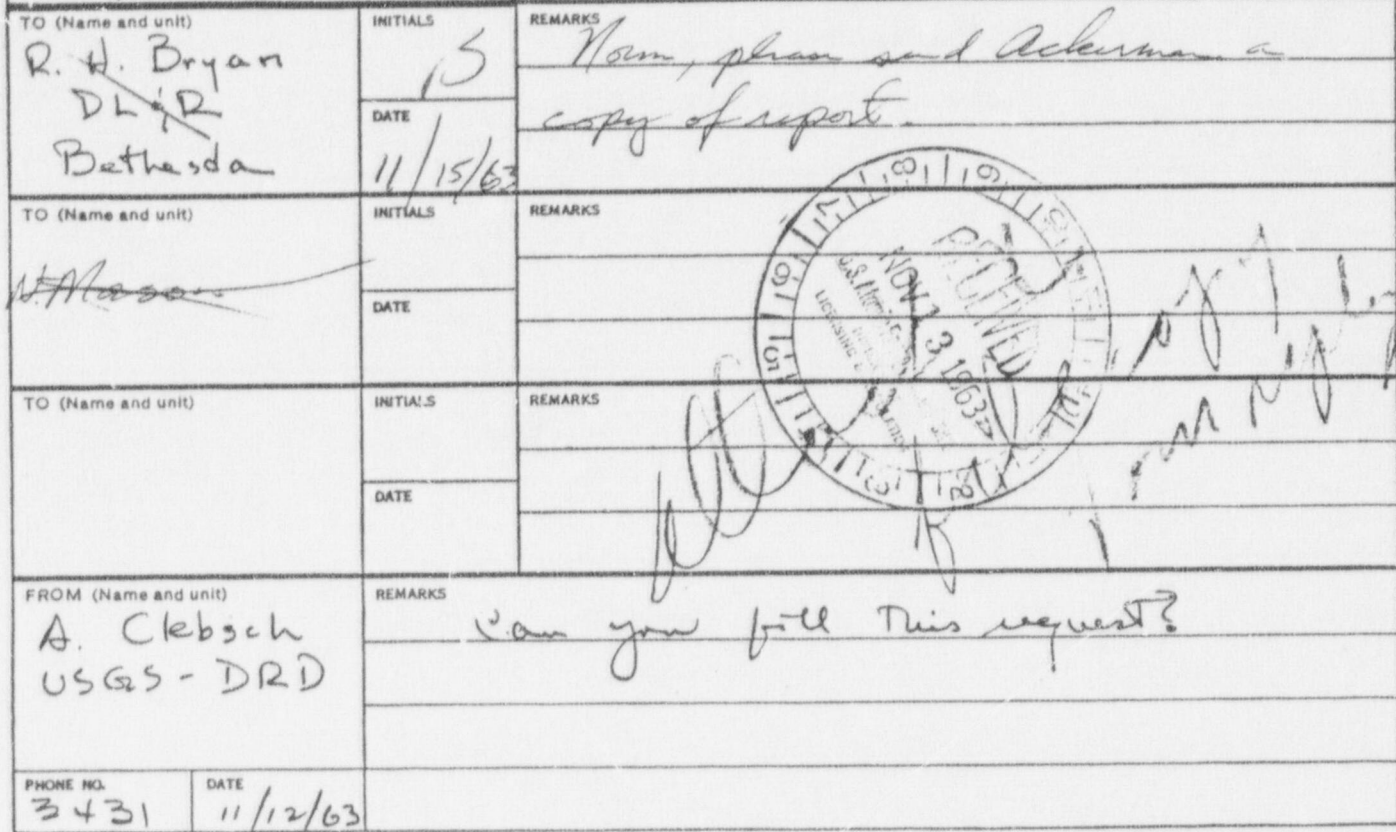 TO (Name and unit)
R. H. Bryan
DL&R
Bethesda
INITIALS
DATE
11/15/63
REMARKS
Norm, please send Ackerman a
copy of report.
TO (Name and unit)
N. Mason
INITIALS
DATE
REMARKS
RECEIVED
NOV 13 1963
TO (Name and unit)
INITIALS
DATE
REMARKS
FROM (Name and unit)
A. Clebsch
USGS - DRD
REMARKS
Can you fill this request?
PHONE NO.
3431
DATE
11/12/63